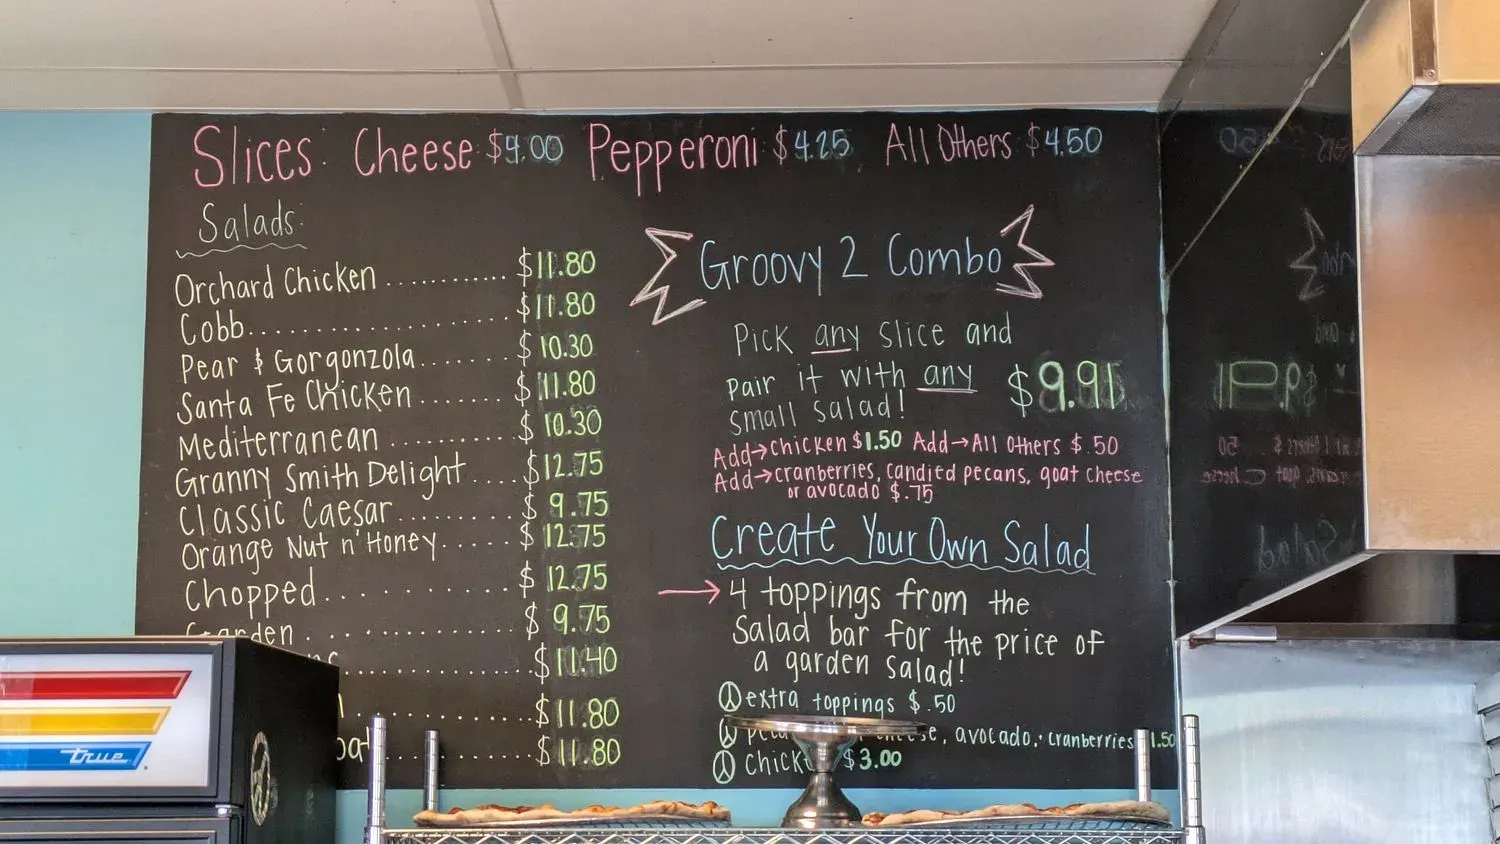 Slices: Cheese $4.00 Pepperoni $4.25 All Others $4.50
Salads:
Orchard Chicken ........... $11.80
Cobb...................... $11.80
Pear & Gorgonzola....... $10.30
Santa Fe Chicken ........ $11.80
Mediterranean ........... $10.30
Granny Smith Delight .... $12.75
Classic Caesar........... $9.75
Orange Nut n' Honey...... $12.75
Chopped................. $12.75
Garden ................. $9.75
$11.40
$11.80
$11.80
Groovy 2 Combo
Pick any slice and
pair it with any
small salad!
$9.91
Add→chicken $1.50 Add→All Others $.50
Add→cranberries, candied pecans, goat cheese
or avocado $.75
Create Your Own Salad
→ 4 toppings from the
Salad bar for the price of
a garden salad!
extra toppings $.50
avocado, cranberries 1.50
$3.00
true